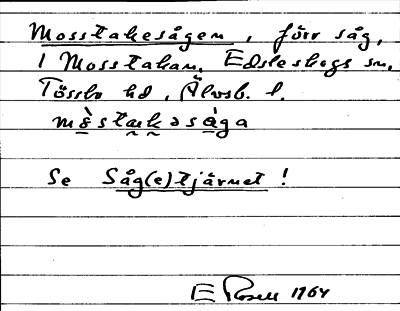 Mosstakesågen, förr såg,
i Mosstakan. Edsleskogs sn.
Tössbo hd, Älvsb. l.
mòstakəsàga
Se Såg(e)tjärnet!
E Rosell 1964